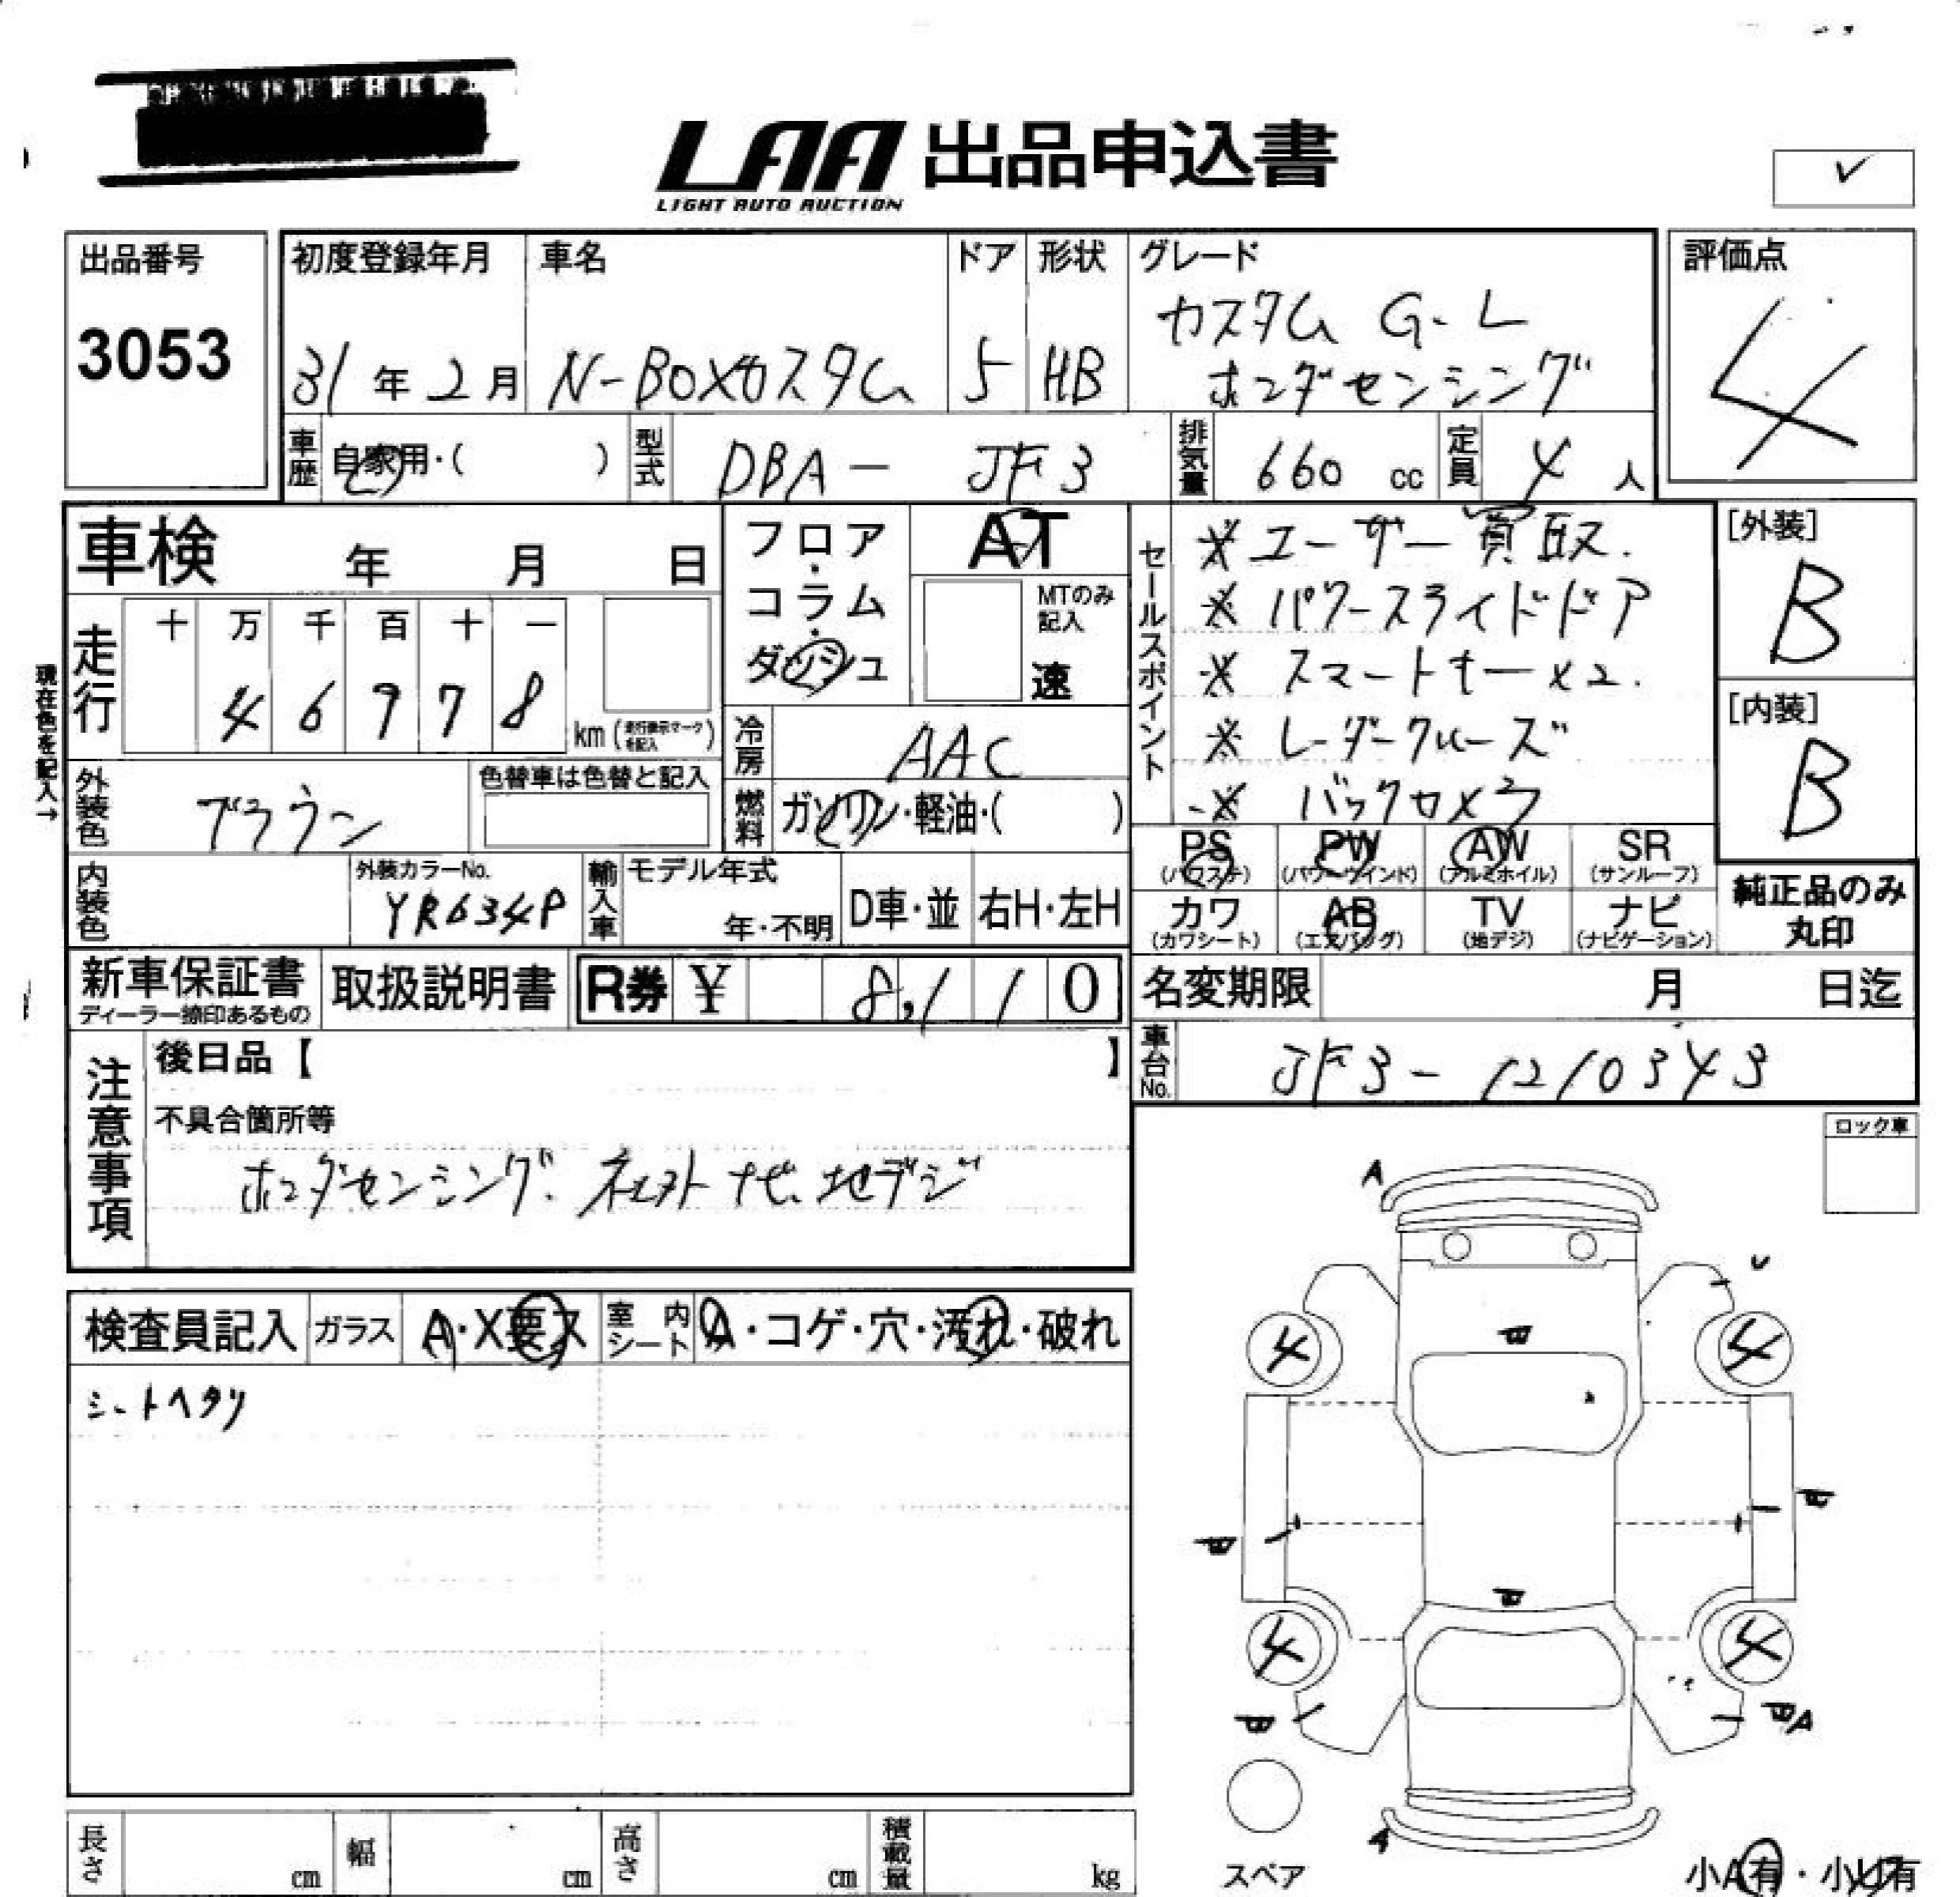 LAA 出品申込書
LIGHT AUTO AUCTION
✓
出品番号
3053
初度登録年月
31年2月
車名
N-BOXカスタム
ドア
5
形状
HB
グレード
カスタム G・L
ホンダセンシング
評価点
4
車歴 自家用・( )
型式 DBA- JF3
排気量 660 cc
定員 4人
車検 年 月 日
フロア・コラム・ダッシュ
AT
MTのみ記入
速
セールスポイント
※ユーザー買取.
※パワースライドドア
※スマートキーx2.
※レーダークルーズ
※バックカメラ
[外装]
B
[内装]
B
現在色を記入→
走行
十 万 千 百 十 一
4 6 9 7 8
km (走行表示マークを記入)
冷房 AAC
外装色 ブラウン
色替車は色替と記入
燃料 ガソリン・軽油・( )
PS (パワステ)
PW (パワーウインド)
AW (アルミホイル)
SR (サンルーフ)
カワ (カワシート)
AB (エアバッグ)
TV (地デジ)
ナビ (ナビゲーション)
純正品のみ
丸印
内装色
外装カラーNo.
YR634P
輸入車
モデル年式
年・不明
D車・並
右H・左H
新車保証書
ディーラー捺印あるもの
取扱説明書
R券 ¥ 8,110
名変期限 月 日迄
車台No. JF3-1210343
注意事項
後日品【 】
不具合箇所等
ホンダセンシング. ネクストナビ. 地デジ
ロック車
検査員記入
ガラス A・X要ス
室内シート A・コゲ・穴・汚れ・破れ
シートヘタリ
A
U
4 4
4 4
A
A
スペア
小A有・小U有
長さ cm
幅 cm
高さ cm
積載量 kg